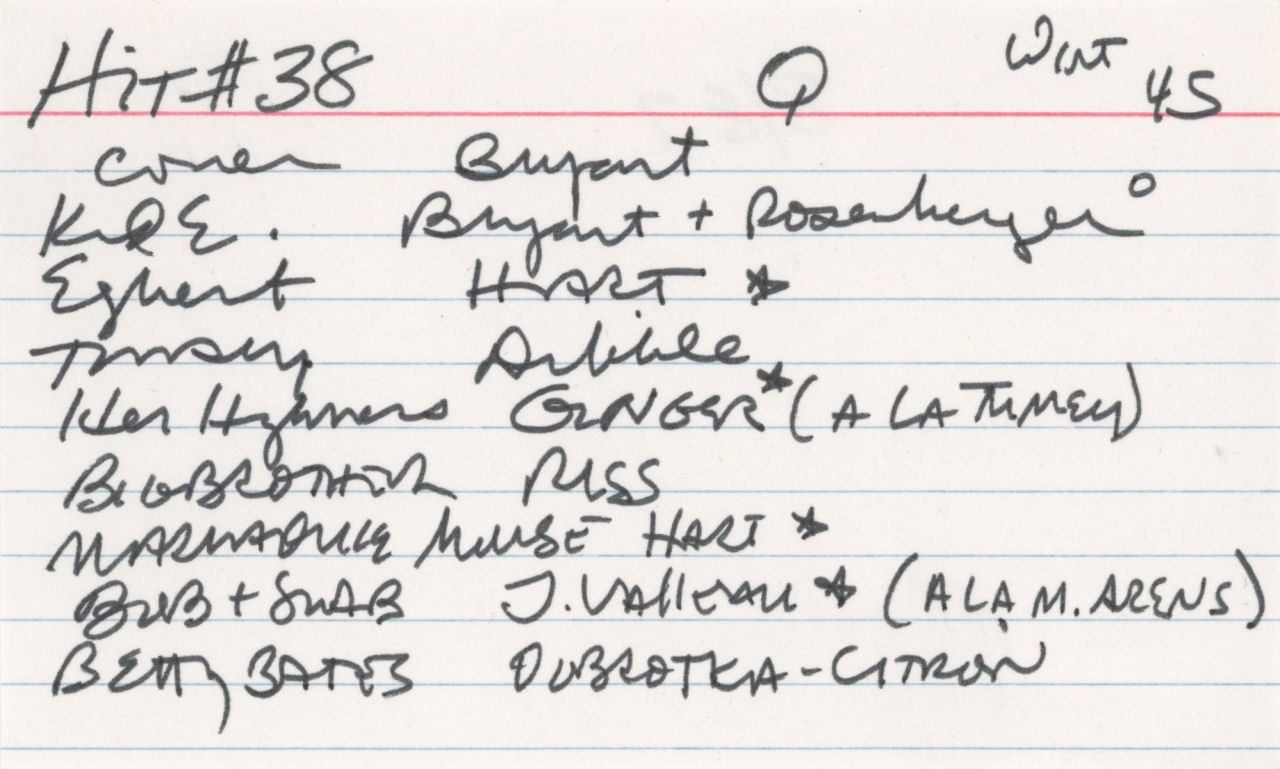 Hit #38 Q Wint 45
Cover Bryant
Kid E. Bryant + Rosenberger o
Egbert HART *
Tommy Dribble
Her Hymers GINGER * (A LA TUMEY)
BIG BROTHER RISS
MARMADUKE MOUSE HART *
BUB + SNAB J. Valleau * (A LA M. ARENS)
BETTY BATES DUBROTKA-CITRON